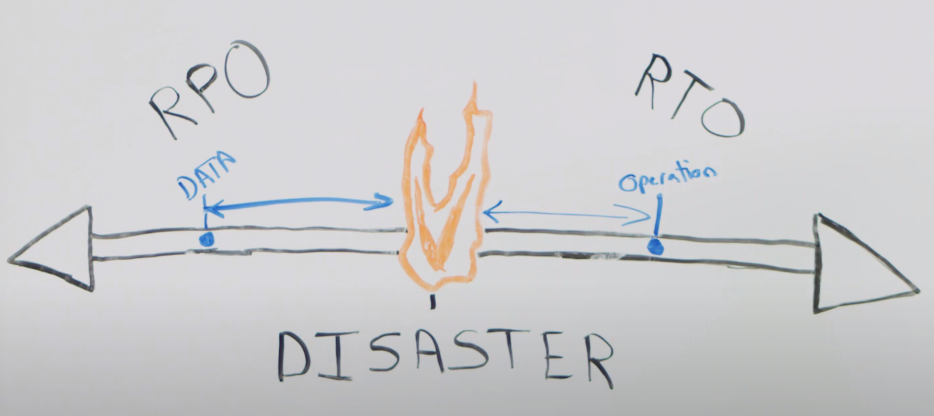 RPO
RTO
DATA
Operation
DISASTER